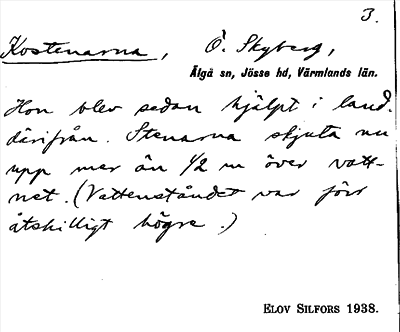 3.
Kostenarna, Ö. Skyberg,
Älgå sn, Jösse hd, Värmlands län.
Hon blev sedan hjälpt i land
därifrån. Stenarna skjuta nu
upp mer än 1/2 m över vatt-
net. (Vattenståndet var förr
åtskilligt högre.)
ELOV SILFORS 1938.